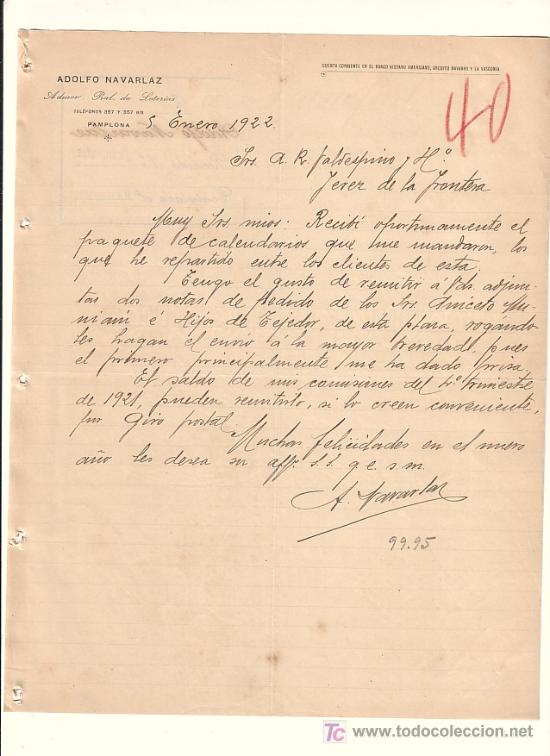 CUENTA CORRIENTE EN EL BANCO HISPANO AMERICANO, CRÉDITO NAVARRO Y LA VASCONIA
ADOLFO NAVARLAZ
Admor. Pral. de Loterías
TELÉFONOS 357 Y 357 BIS
PAMPLONA 5 Enero 1922
40
Srs. A. R. Valdespino y Hº
Jerez de la Frontera
Muy Srs mios: Recibí oportunamente el
paquete de calendarios que me mandaron, los
que he repartido entre los clientes de esta.
Tengo el gusto de remitir á Vds. adjun-
tas dos notas de pedido de los Srs Aniceto Mu-
niain é Hijos de Tejedor, de esta plaza, rogando
les hagan el envio á la mayor brevedad, pues
el primero principalmente, me ha dado prisa.
El saldo de mis comisiones del 4º trimestre
de 1921, pueden remitirlo, si lo creen conveniente,
por Giro postal.
Muchas felicidades en el nuevo
año les desea su affº s.s. q.e.s.m.
A. Navarlaz
99.95
TC www.todocoleccion.net